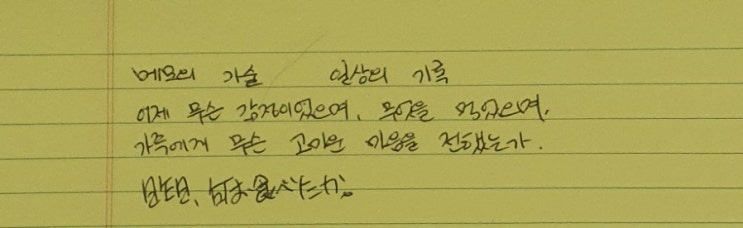 메모의 기술 일상의 기록
어제 무슨 감정이었으며, 무엇을 먹었으며,
가족에게 무슨 고마운 마음을 전했는가.
昨日、何を食べたか。